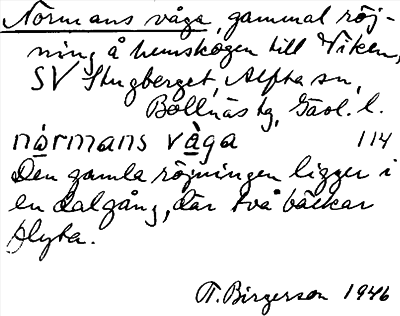 Normans våga, gammal röj-
ning å hemskogen till Viken,
SV Stugberget, Alfta sn,
Bollnäs tg, Gävl. l.
nòrmans vàga 114
Den gamla röjningen ligger i
en dalgång, där två bäckar
flyta.
T. Birgerson 1946